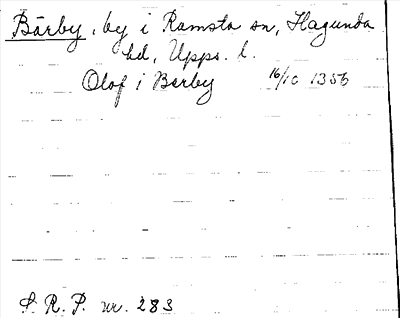 Bärby, by i Ramsta sn, Hagunda
hd, Upps. l.
Olof i Berby 16/10 1356
S. R. P. nr. 283